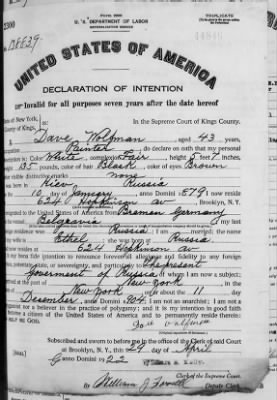 Form 2203
U. S. DEPARTMENT OF LABOR
NATURALIZATION SERVICE
TRIPLICATE
UNITED STATES OF AMERICA
DECLARATION OF INTENTION
Invalid for all purposes seven years after the date hereof
State of New York,
County of Kings,
In the Supreme Court of Kings County.
Dave aged 43 years,
Painter do declare on oath that my personal
is: Color White, complexion Fair, height 5 feet 7 inches,
135 pounds, color of hair Black, color of eyes Brown
visible distinctive marks none
Kiev Russia
10 day of January, anno Domini 879; I now reside
624 Hopkinson av, Brooklyn, N.Y.
emigrated to the United States of America from Bremen Germany
my last
residence was Russia I am married; the name
Ethel; she was born at Russia
resides at 624 Hopkinson av
my bona fide intention to renounce forever all allegiance and fidelity to any foreign
state, or sovereignty, and particularly to The present
Government of Russia of whom I am now a subject;
at the port of New York, in the
New York on or about the 11 day
December, anno Domini 904; I am not an anarchist; I am not a
nor a believer in the practice of polygamy; and it is my intention in good faith
become a citizen of the United States of America and to permanently reside therein:
HELP ME GOD.
Subscribed and sworn to before me in the office of the Clerk of said Court
at Brooklyn, N. Y., this 29 day of April
anno Domini 22
[SEAL]
Clerk of the Supreme Court.
By William J. Deputy Clerk.